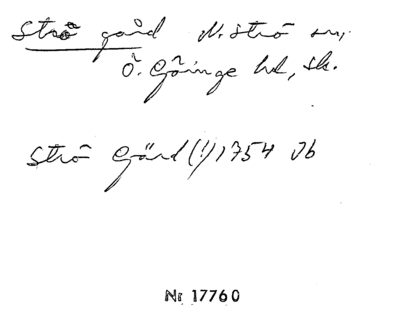 Strö gård N. Strö sn,
Ö. Göinge hd, Sk.
Strö Gård (!) 1754 Jb
Nr 17760